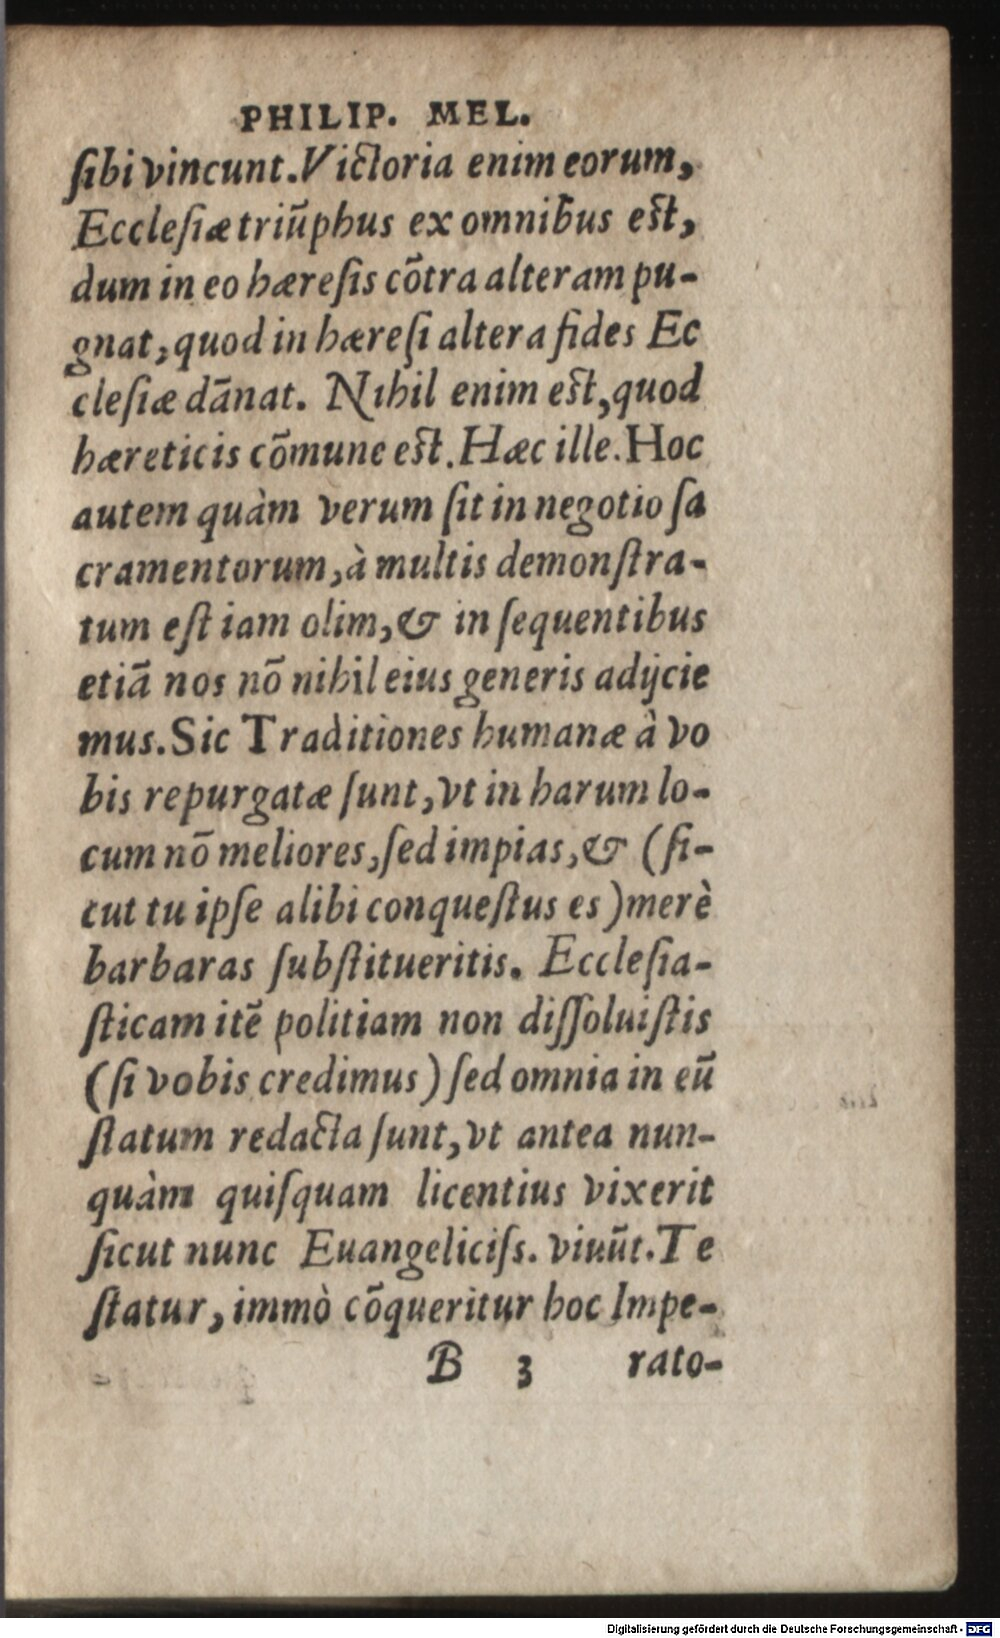 PHILIP. MEL.
ſibi vincunt. Victoria enim eorum,
Eccleſiæ triũphus ex omnibus eſt,
dum in eo hæreſis cõtra alteram pu-
gnat, quod in hæreſi altera fides Ec
cleſiæ dãnat. Nihil enim eſt, quod
hæreticis cõmune eſt. Hæc ille. Hoc
autem quàm verum ſit in negotio ſa
cramentorum, à multis demonſtra-
tum eſt iam olim, & in ſequentibus
etiã nos nõ nihil eius generis adijcie
mus. Sic Traditiones humanæ à vo
bis repurgatæ ſunt, vt in harum lo-
cum nõ meliores, ſed impias, & (ſi-
cut tu ipſe alibi conqueſtus es) merè
barbaras ſubſtitueritis. Eccleſia-
ſticam itẽ politiam non diſſoluiſtis
(ſi vobis credimus) ſed omnia in eũ
ſtatum redacta ſunt, vt antea nun-
quàm quiſquam licentius vixerit
ſicut nunc Euangeliciſs. viuũt. Te
ſtatur, immò cõqueritur hoc Impe-
B 3 rato-
Digitalisierung gefördert durch die Deutsche Forschungsgemeinschaft - DFG